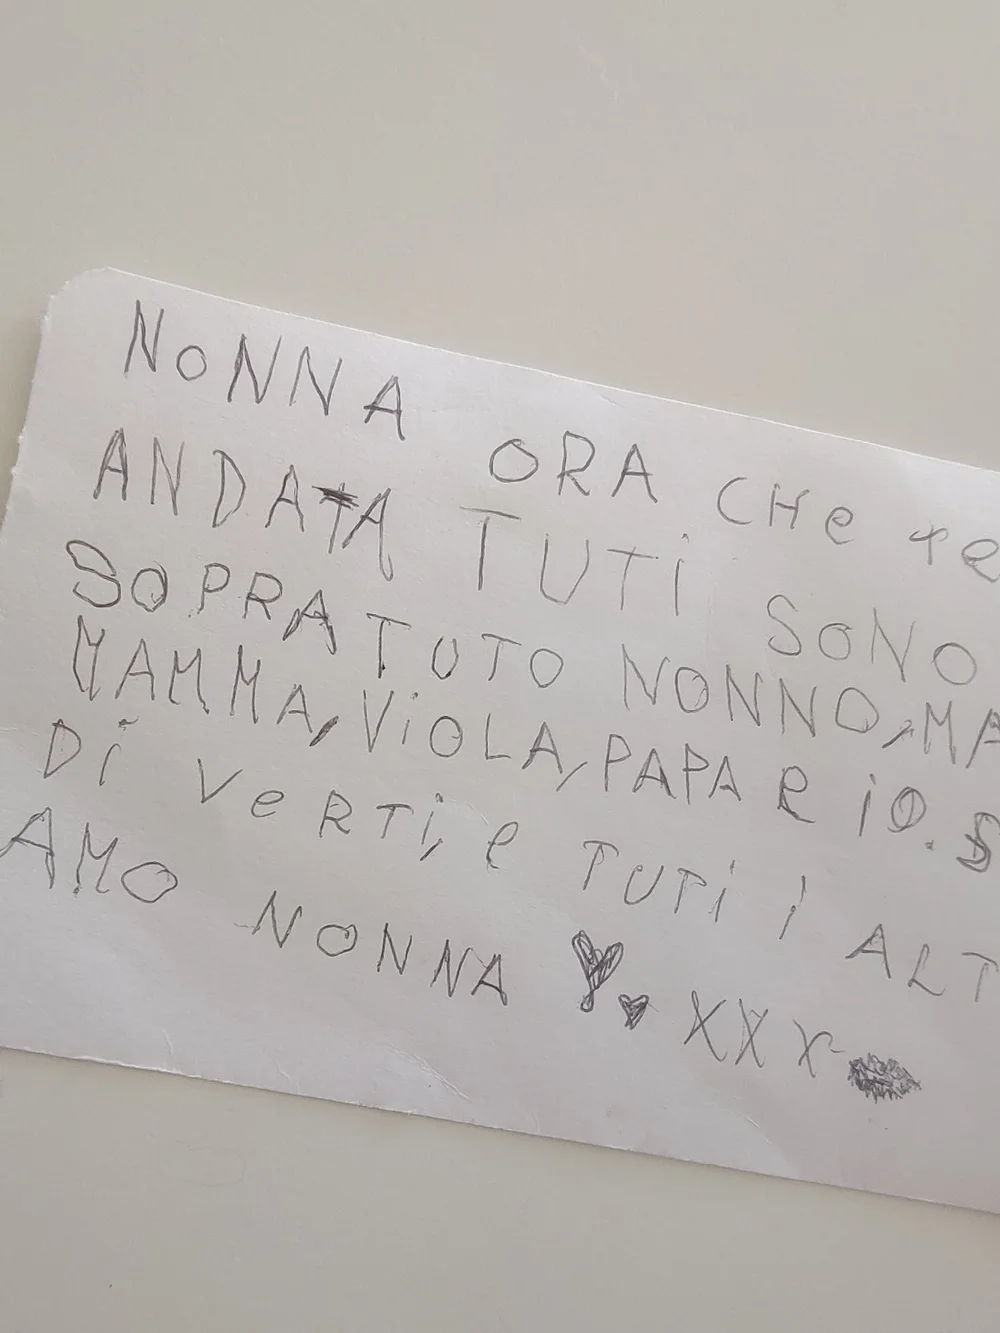 NONNA ORA CHE te
ANDATA TUTi SONO
SOPRATUTO NONNO, MA
MAMMA, ViOLA, PAPA E iO. S
Di VeRTi, e TUTi I ALT
AMO NONNA XXX